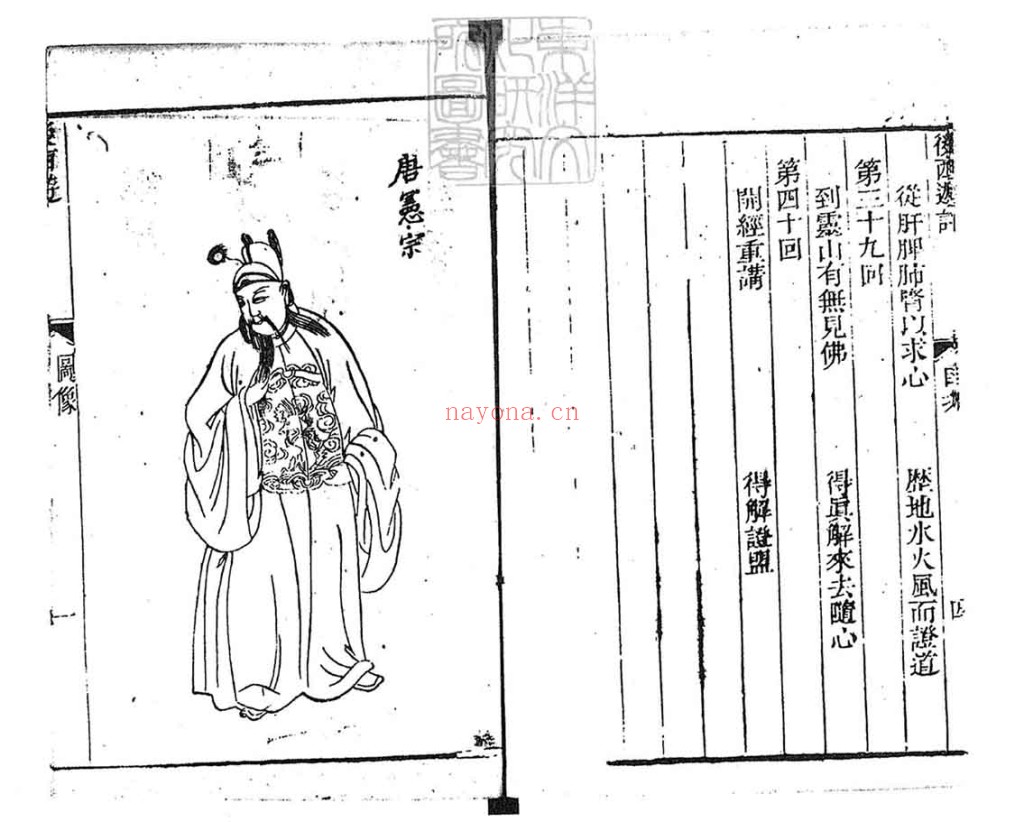 後西遊記
從肝脾肺腎以求心
歷地水火風而證道
第三十九回
到靈山有無見佛
得眞解來去隨心
第四十回
開經重講
得解證盟
目次
四
東洋文
化研究
所圖書
唐憲宗
後西遊
圖像
一
nayona.cn